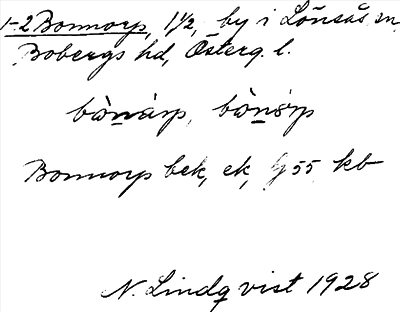 1-2 Bonnorp, 1 1/2, by i Lönsås sn,
Bobergs hd, Österg. l.
bònàrp, bònòrp
Bonnorp bek, ek, 55 kb
N. Lindqvist 1928